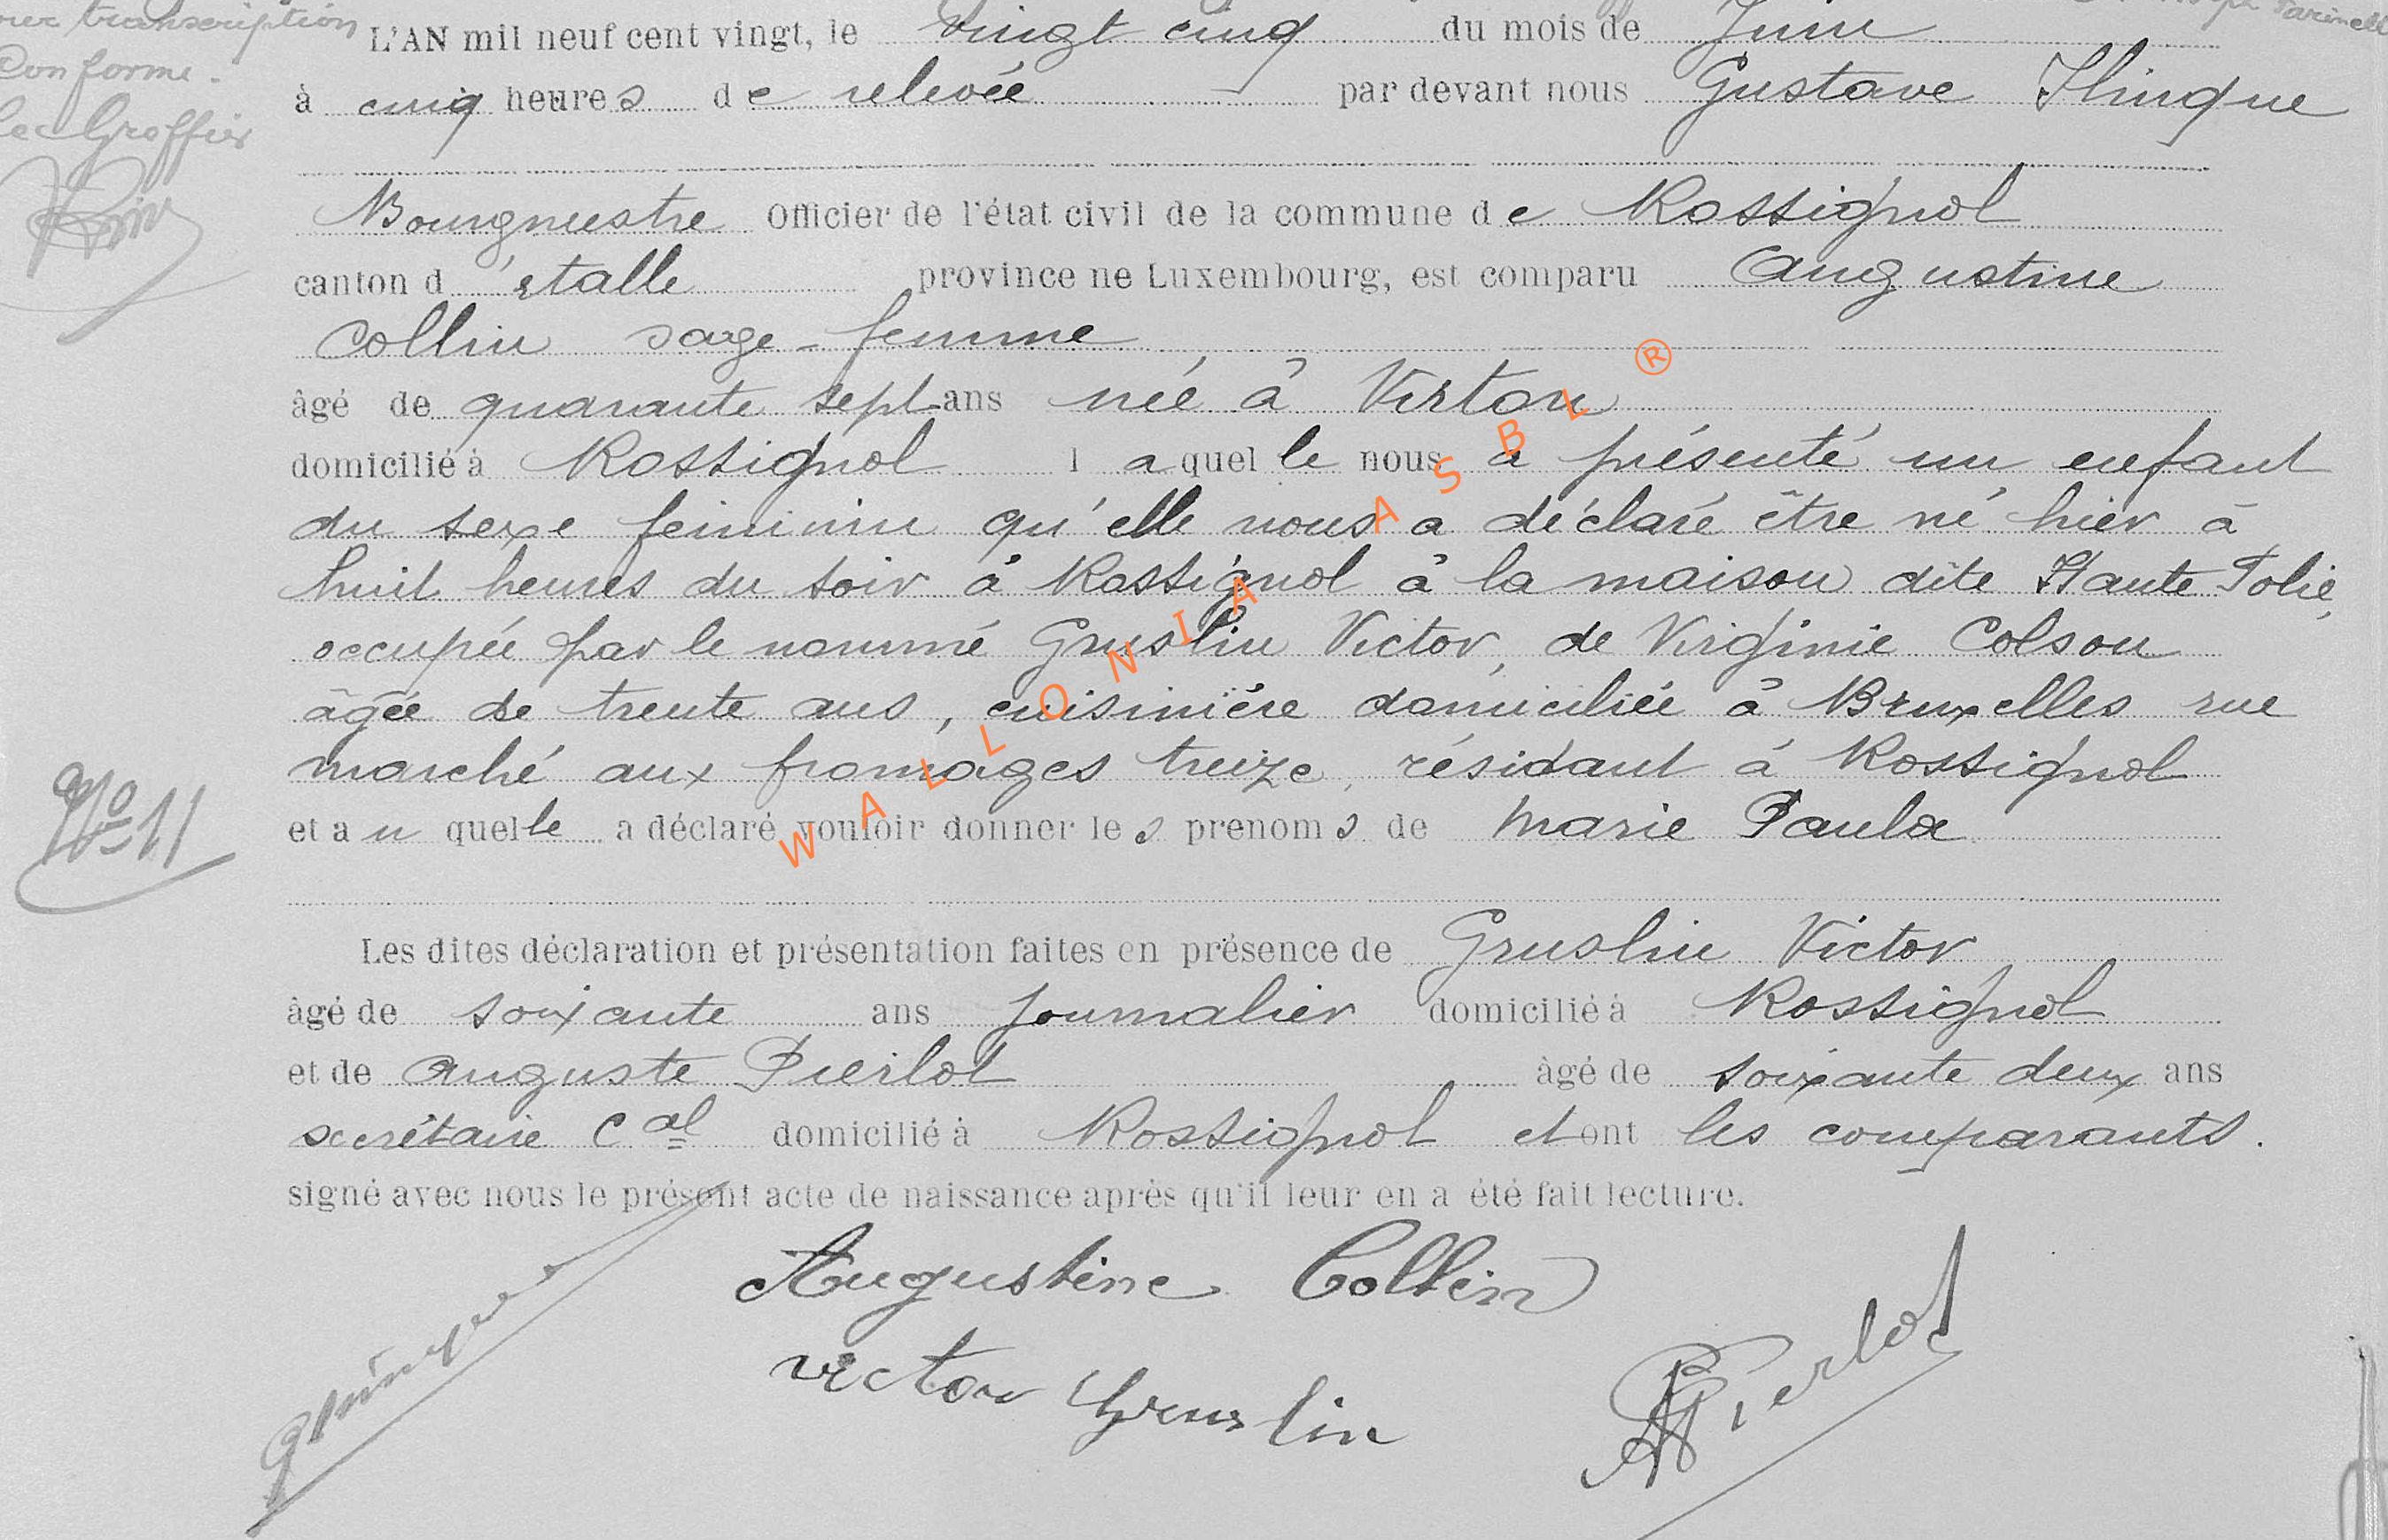 transcription
L'AN mil neuf cent vingt, le vingt cinq du mois de Juin
conforme.
à cinq heures de relevée par devant nous Gustave Hinque
Le Greffier
Bourgmestre Officier de l'état civil de la commune de Rossignol
canton d'étalle province ne Luxembourg, est comparu Augustine
Collin sage-femme
âgé de quarante sept ans née à Virton
domicilié à Rossignol laquelle nous a présenté un enfant
du sexe feminin qu'elle nous a déclaré être né hier à
huit heures du soir à Rossignol à la maison dite Haute Folie,
occupée par le nommé Gruslin Victor, de Virginie Colson
âgée de trente ans, cuisinière domiciliée à Bruxelles rue
marché aux fromages treize, résidant à Rossignol
No 11
et au quel le a déclaré vouloir donner les prenoms de Marie Paula
Les dites déclaration et présentation faites en présence de Gruslin Victor
âgé de soixante ans journalier domicilié à Rossignol
et de Auguste Pierlot âgé de soixante deux ans
secrétaire cal domicilié à Rossignol et ont les comparants.
signé avec nous le présent acte de naissance après qu'il leur en a été fait lecture.
Augustine Collin
Victor Gruslin
A Pierlot
WALLONIA ASBL ®